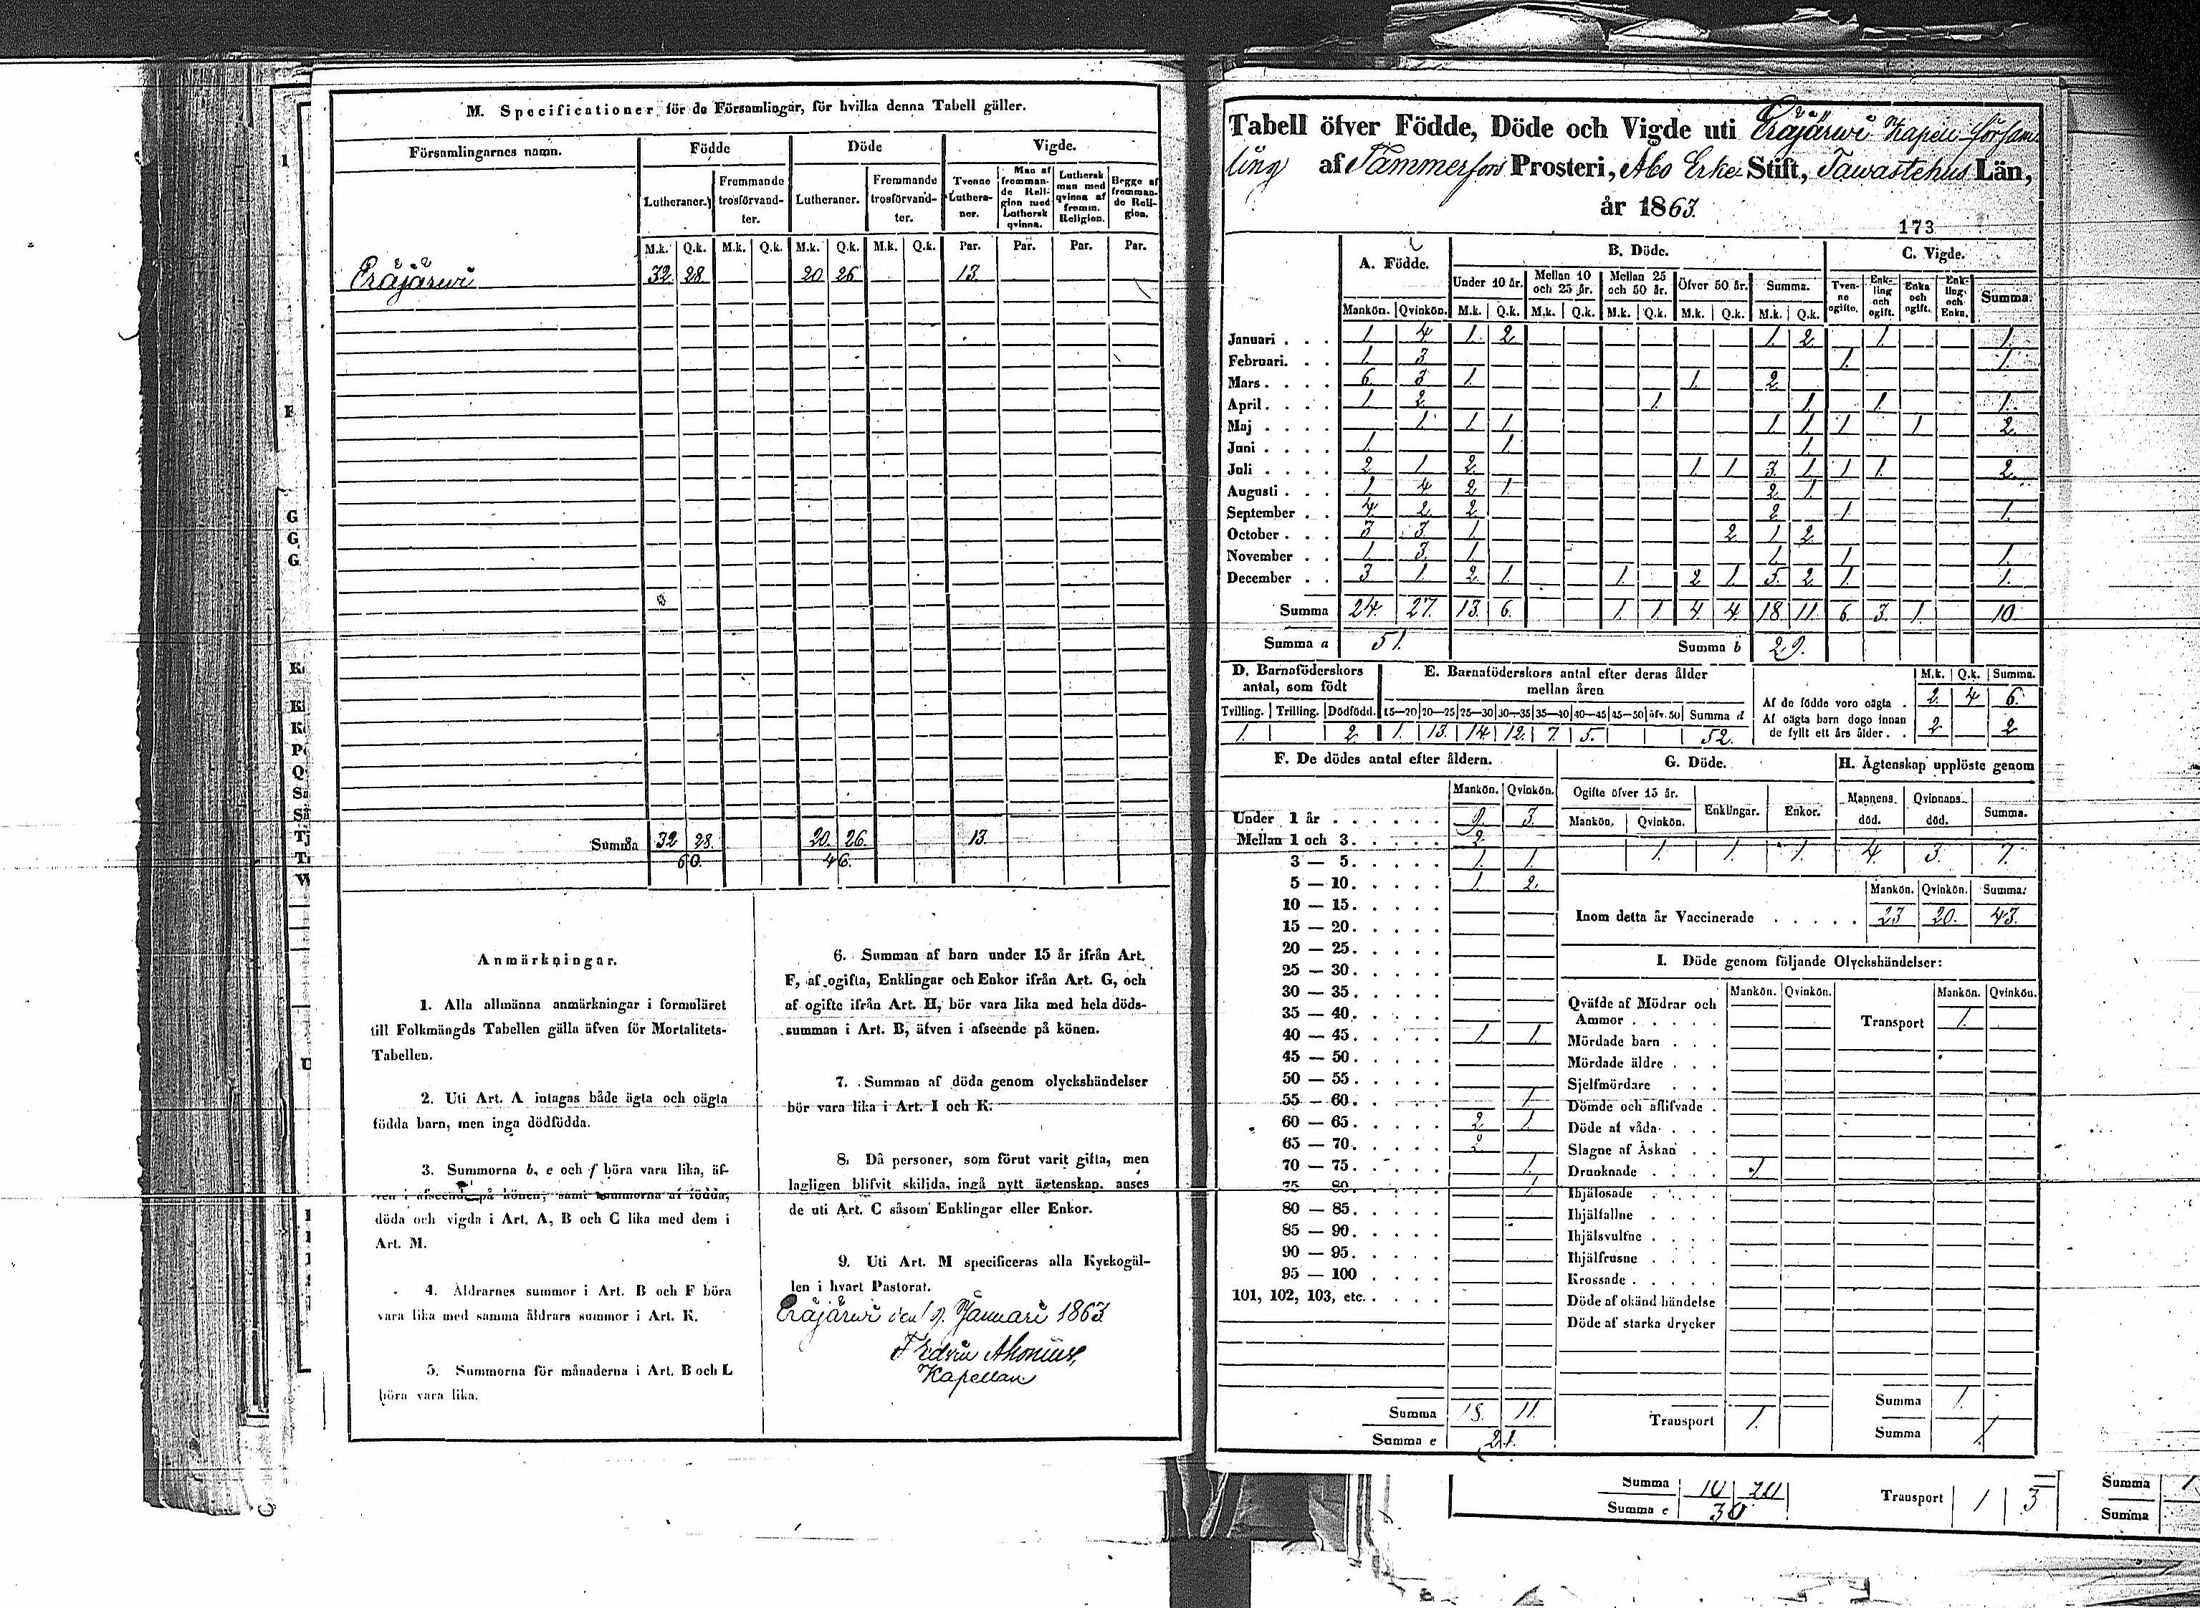 M. Specificationer för de Församlingar, för hvilka denna Tabell gäller.
Församlingarnes namn. Födde Döde Vigde.
Lutheraner. Frommande trosförvandter. Lutheraner. Fremmande trosförvandter. Tvenne Lutheraner. Man af fremmande Religion med Luthersk qvinna. Luthersk man med qvinna af fremm. Religion. Begge af fremmande Religion.
M.k. Q.k. M.k. Q.k. M.k. Q.k. M.k. Q.k. Par. Par. Par. Par.
Eräjärwi 32 28 20 26 13
Summa 32 28. 20. 26. 13
60. 46.
Anmärkningar.
1. Alla allmänna anmärkningar i formuläret
till Folkmängds Tabellen gälla äfven för Mortalitets-
Tabellen.
2. Uti Art. A intagas både ägta och oägta
födda barn, men inga dödfödda.
3. Summorna b, e och f böra vara lika, äf-
ven i afseende på könen; samt summorna af födda,
döda och vigda i Art. A, B och C lika med dem i
Art. M.
4. Åldrarnes summor i Art. B och F böra
vara lika med samma åldrars summor i Art. K.
5. Summorna för månaderna i Art. B och L
böra vara lika.
6. Summan af barn under 15 år ifrån Art.
F, af ogifta, Enklingar och Enkor ifrån Art. G, och
af ogifte ifrån Art. H, bör vara lika med hela döds-
summan i Art. B, äfven i afseende på könen.
7. Summan af döda genom olyckshändelser
bör vara lika i Art. I och K.
8. Då personer, som förut varit gifta, men
lagligen blifvit skiljda, ingå nytt ägtenskap, anses
de uti Art. C såsom Enklingar eller Enkor.
9. Uti Art. M specificeras alla Kyrkogäl-
len i hvart Pastorat.
Eräjärwi den Januari 1863
Kapellan
Tabell öfver Födde, Döde och Vigde uti Eräjärwi Kapell församling
ling af Tammerfors Prosteri, Åbo Erke Stift, Tawastehus Län,
år 1863.
173
A. Födde. B. Döde. C. Vigde.
Under 10 år. Mellan 10 och 25 år. Mellan 25 och 50 år. Öfver 50 år. Summa. Tvenne ogifte. Enkling och ogift. Enka och ogift. Enkling och Enka. Summa.
Mankön. Qvinkön. M.k. Q.k. M.k. Q.k. M.k. Q.k. M.k. Q.k. M.k. Q.k.
Januari 1 4 1. 2 1 2 1 1.
Februari. 1 3 1. 1.
Mars 6 3 1. 1. 2
April. 1 2 1. 1 1. 1.
Maj 1 1. 1 1 1. 1 1 2
Juni 1. 1 1.
Juli 2 1 2 1 1 3 1 1 1. 2
Augusti 1 4 2 1. 2 1
September 4 2 2 2 1 1.
October 3 3 1. 2 1 2
November 1 3 1. 1 1 1.
December 3 1. 2 1. 1 2 1 5 2 1. 1.
Summa 24. 27. 13. 6. 1. 1. 4. 4. 18. 11. 6. 3. 1. 10.
Summa a 51. Summa b 29.
D. Barnaföderskors antal, som födt E. Barnaföderskors antal efter deras ålder mellan åren M.k. Q.k. Summa.
Tvilling. Trilling. Dödfödd. 15—20 20—25 25—30 30—35 35—40 40—45 45—50 öfv. 50 Summa d
1. 2 1. 13. 14. 12. 7. 5. 52.
Af de födde voro oägta 2 4 6.
Af oägta barn dogo innan
de fyllt ett års ålder 2 2
F. De dödes antal efter åldern. G. Döde. H. Ägtenskap upplöste genom
Mankön. Qvinkön. Ogifte öfver 15 år. Enklingar. Enkor. Mannens död. Qvinnans död. Summa.
Mankön. Qvinkön.
1. 1 1 4. 3. 7.
Under 1 år 9. 3.
Mellan 1 och 3 2
3 — 5. 1. 1.
5 — 10. 1. 2.
10 — 15.
15 — 20.
20 — 25.
25 — 30.
30 — 35.
35 — 40.
40 — 45. 1 1.
45 — 50.
50 — 55.
55 — 60. 1.
60 — 65. 2 1.
65 — 70. 2
70 — 75. 1.
75 80. 1
80 — 85.
85 — 90.
90 — 95.
95 — 100
101, 102, 103, etc.
Summa 18. 11.
Summa e
Mankön. Qvinkön. Summa.
Inom detta år Vaccinerade 23 20. 43.
I. Döde genom följande Olyckshändelser:
Mankön. Qvinkön. Mankön. Qvinkön.
Qväfde af Mödrar och
Ammor Transport 1.
Mördade barn
Mördade äldre
Sjelfmördare
Dömde och aflifvade
Döde af våda
Slagne af Åskan
Drunknade 1
Ihjälosade
Ihjälfallne
Ihjälsvultne
Ihjälfrusne
Krossade
Döde af okänd händelse
Döde af starka drycker
Transport 1. Summa 1.
Summa 1
Summa 10 20 Transport 1 3 Summa 1
Summa e 30 Summa